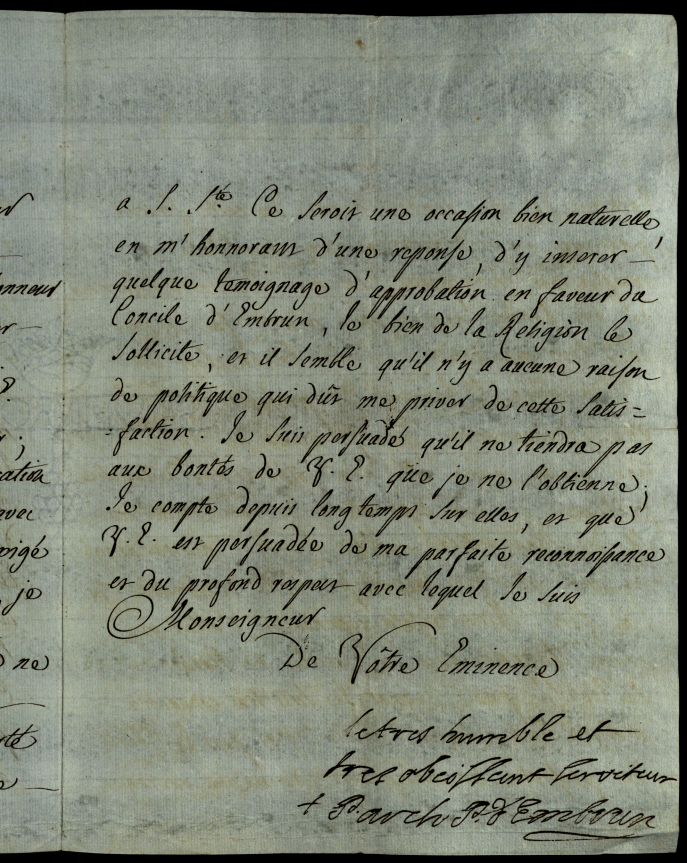 a S. S.té Ce seroit une occasion bien naturelle,
en m'honnorant d'une reponse, d'y inserer —
quelque temoignage d'approbation en faveur du
Concile d'Embrun, le bien de la Religion le
sollicite, et il semble qu'il n'y a aucune raison
de politique qui dût me priver de cette satis=
=faction. Je suis persuadé qu'il ne tiendra pas
aux bontés de V. E. que je ne l'obtienne;
Je compte depuis longtemps sur elles, et que
V. E. est persuadée de ma parfaite reconnoissance
et du profond respect avec lequel Je suis
Monseigneur
De Vôtre Eminence
le tres humble et
tres obeissant serviteur
+ P. arch. P. d'Embrun
onneur
ation
avec
je
ne